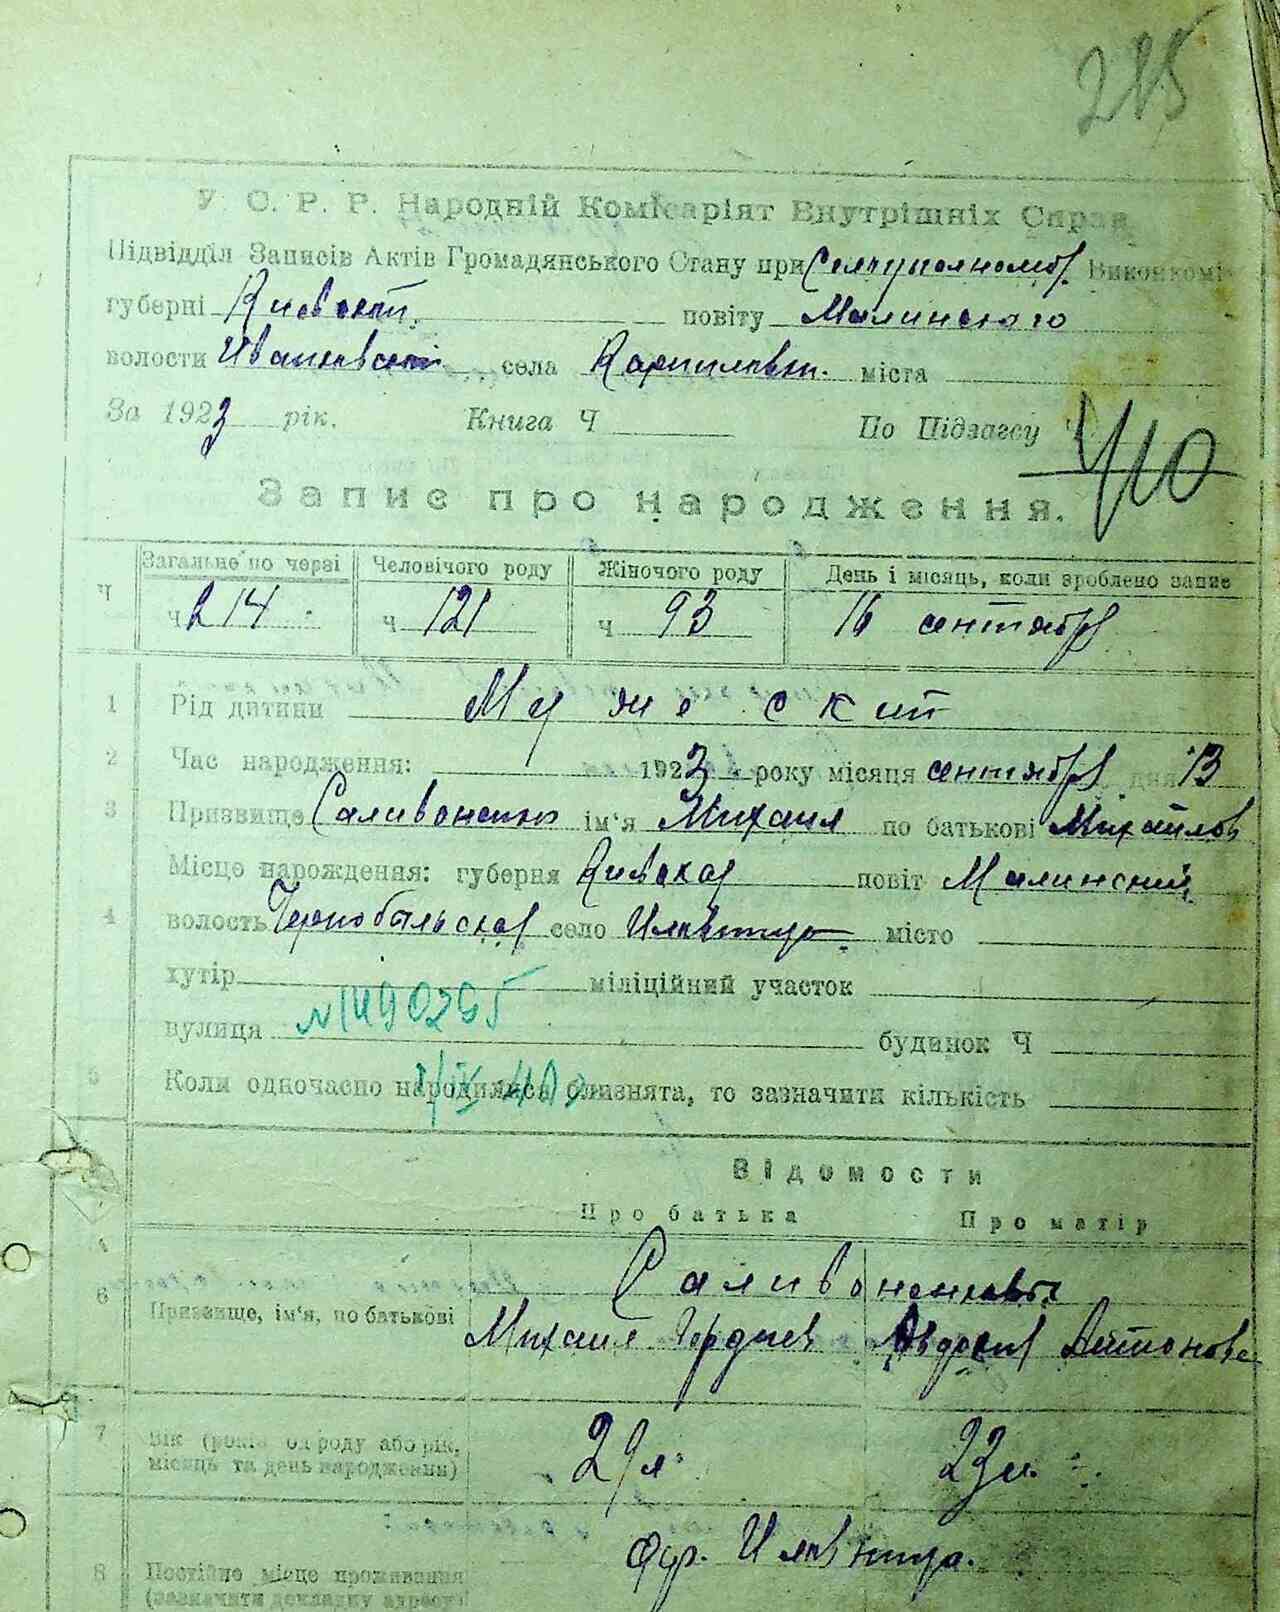 215
У. С. Р. Р. Народній Комісаріят Внутрішніх Справ
Підвідділ Записів Актів Громадянського Стану при Виконкомі
губерні Киевской повіту Малинского
волости Иванковской села Карпиловки міста
За 1923 рік. Книга Ч По Підзагсу Ч 410
Запис про народження.
Ч Загальне по черзі Человічого роду Жіночого роду День і місяць, коли зроблено запис
ч 214 ч 121 ч 93 16 сентября
1 Рід дитини Мужеский
2 Час народження: 1923 року місяця сентября дня 13
3 Призвище Саливоненко ім'я Михаил по батькові Михайлов
Місце нарождення: губерня Киевская повіт Малинский
4 волость Чернобыльская село Илавница місто
хутір міліційний участок
вулиця №490265 будинок Ч
5 Коли одночасно народилися близнята, то зазначити кількість
Відомости
Про батька Про матір
6 Призвище, ім'я, по батькові Саливоненковы
Михаил Гордиев Авдокия Антонова
7 Вік (років от роду або рік, місяць та день народження) 29 л. 23 л.
8 Постійне місце проживання (зазначити докладну адресу)
дер. Илавница.